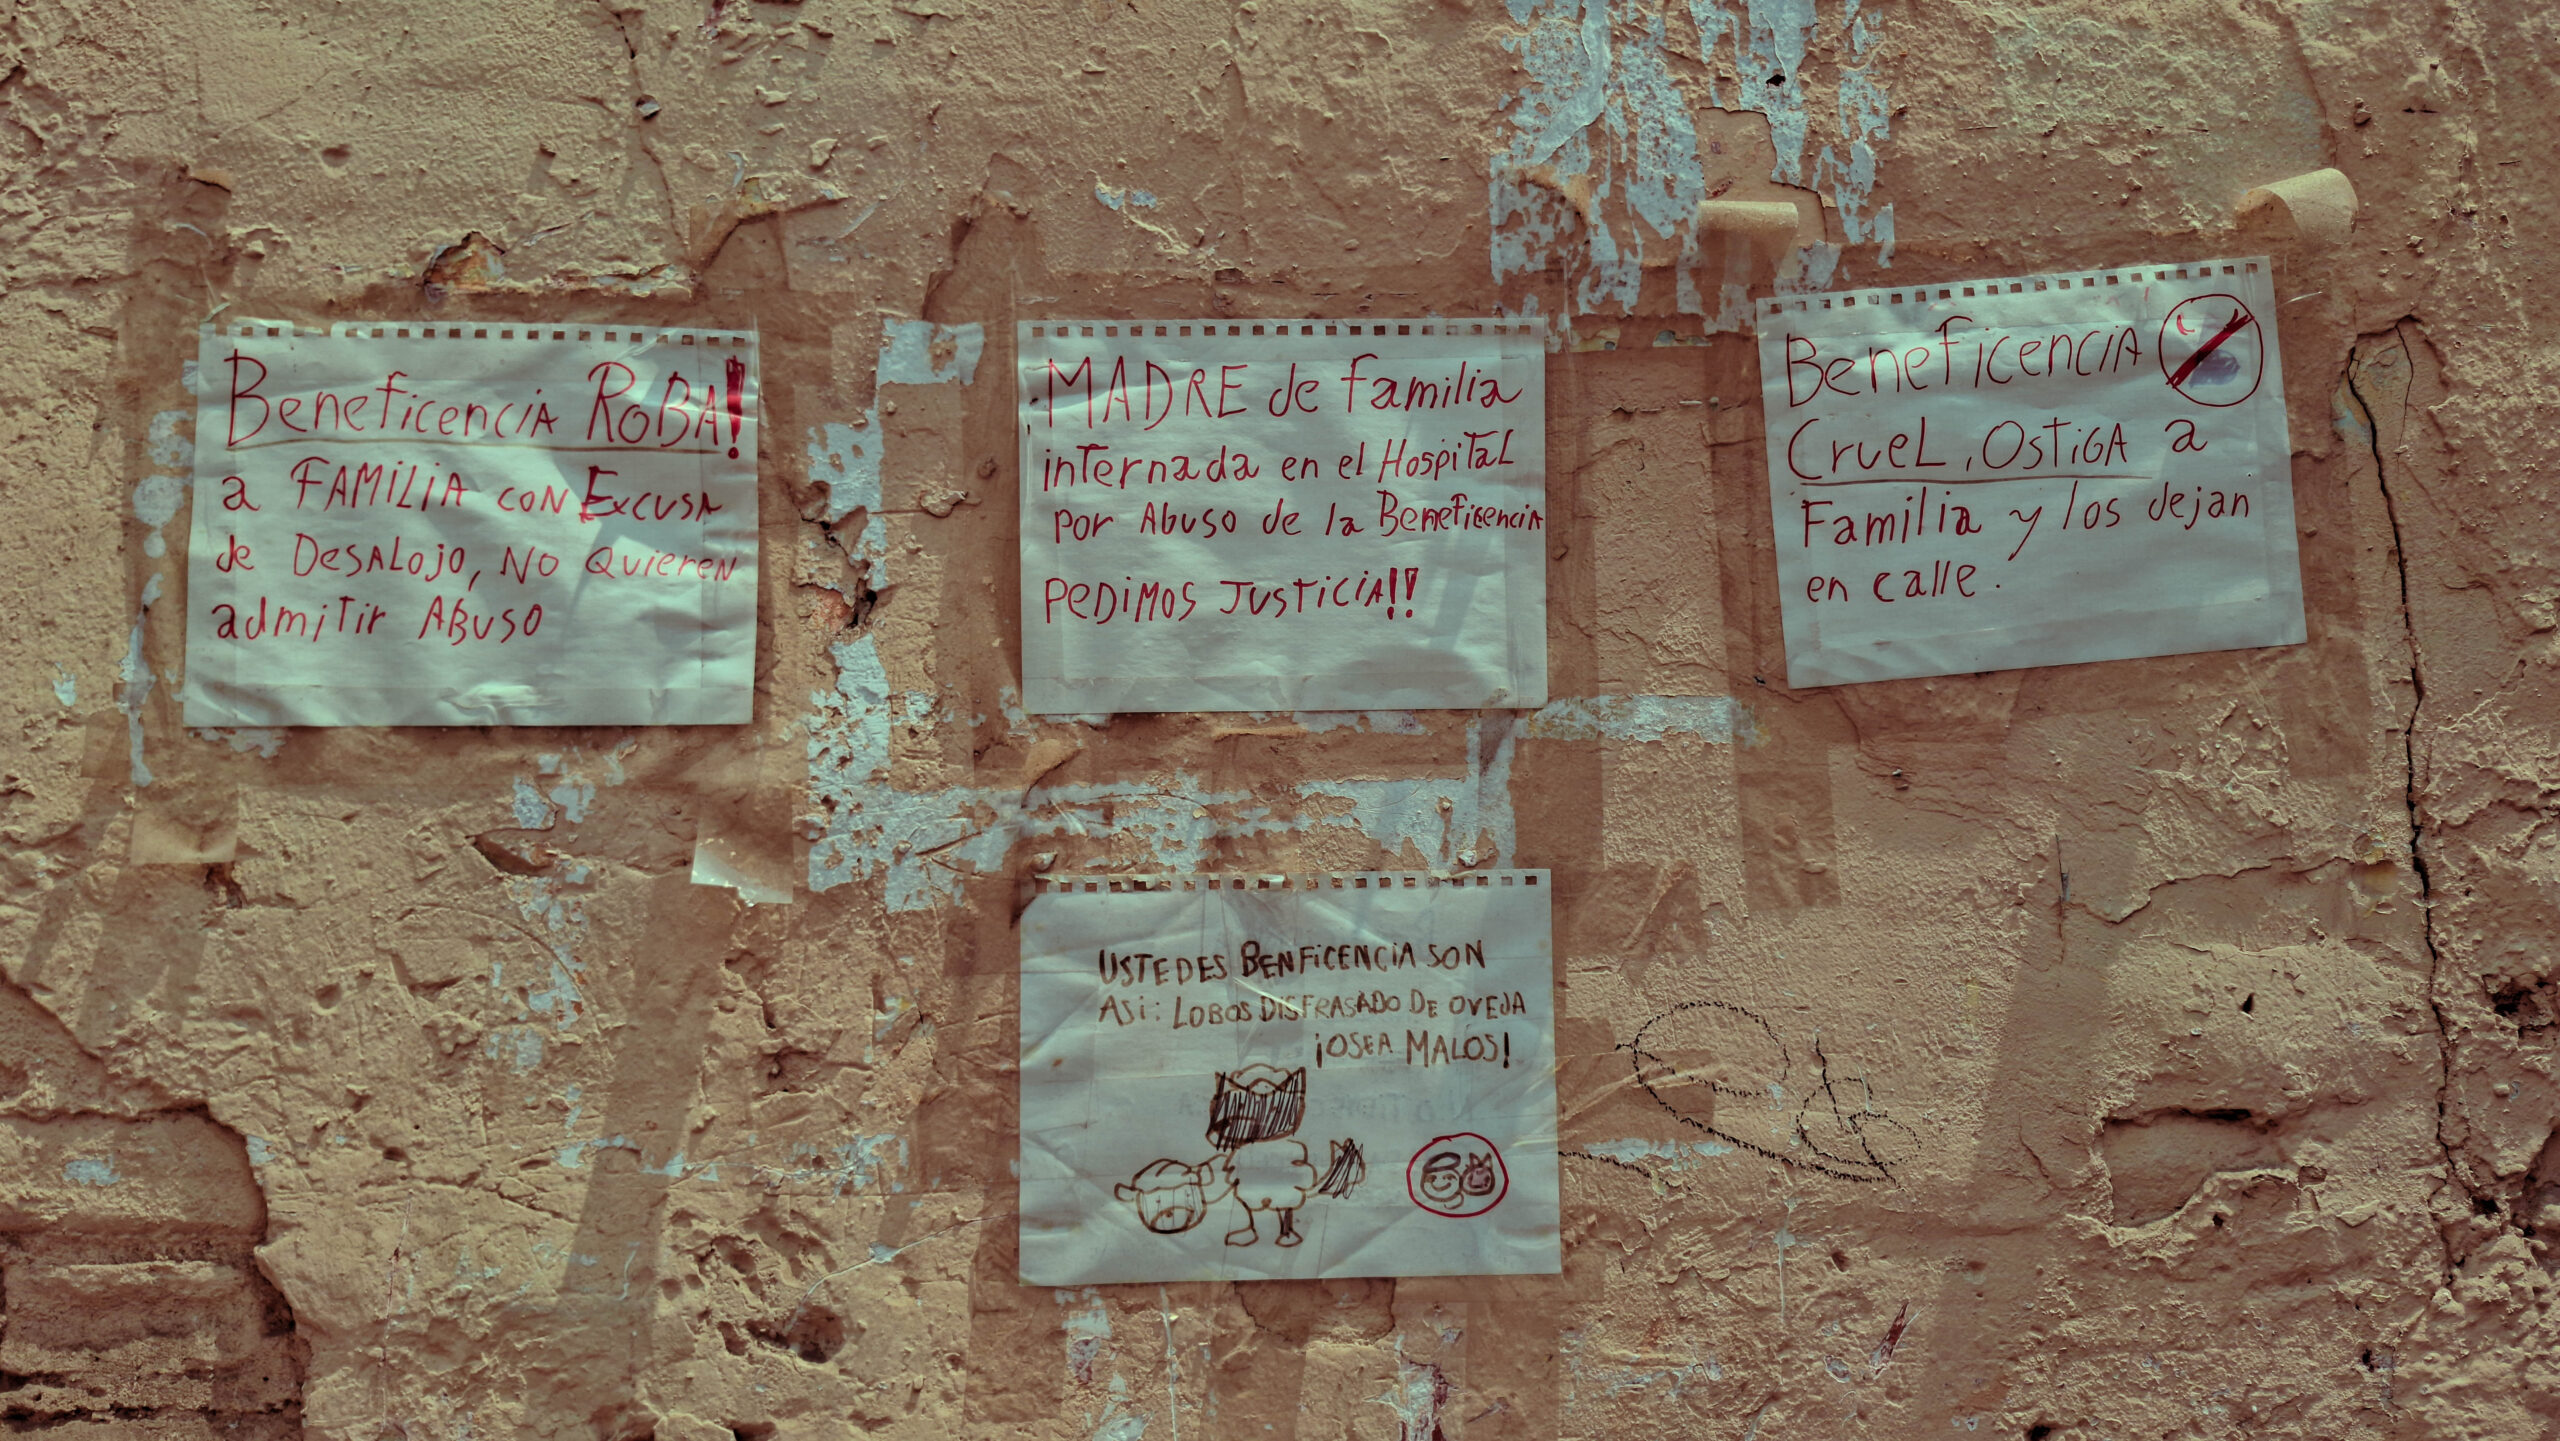 Beneficencia Roba!
a Familia con Excusa
de Desalojo, no quieren
admitir Abuso
MADRE de familia
internada en el Hospital
por Abuso de la Beneficencia
PEDIMOS JUSTICIA!!
Beneficencia
Cruel, Ostiga a
Familia y los dejan
en calle.
USTEDES BENFICENCIA SON
ASi: LOBOS DISFRASADO DE OVEJA
¡OSEA MALOS!